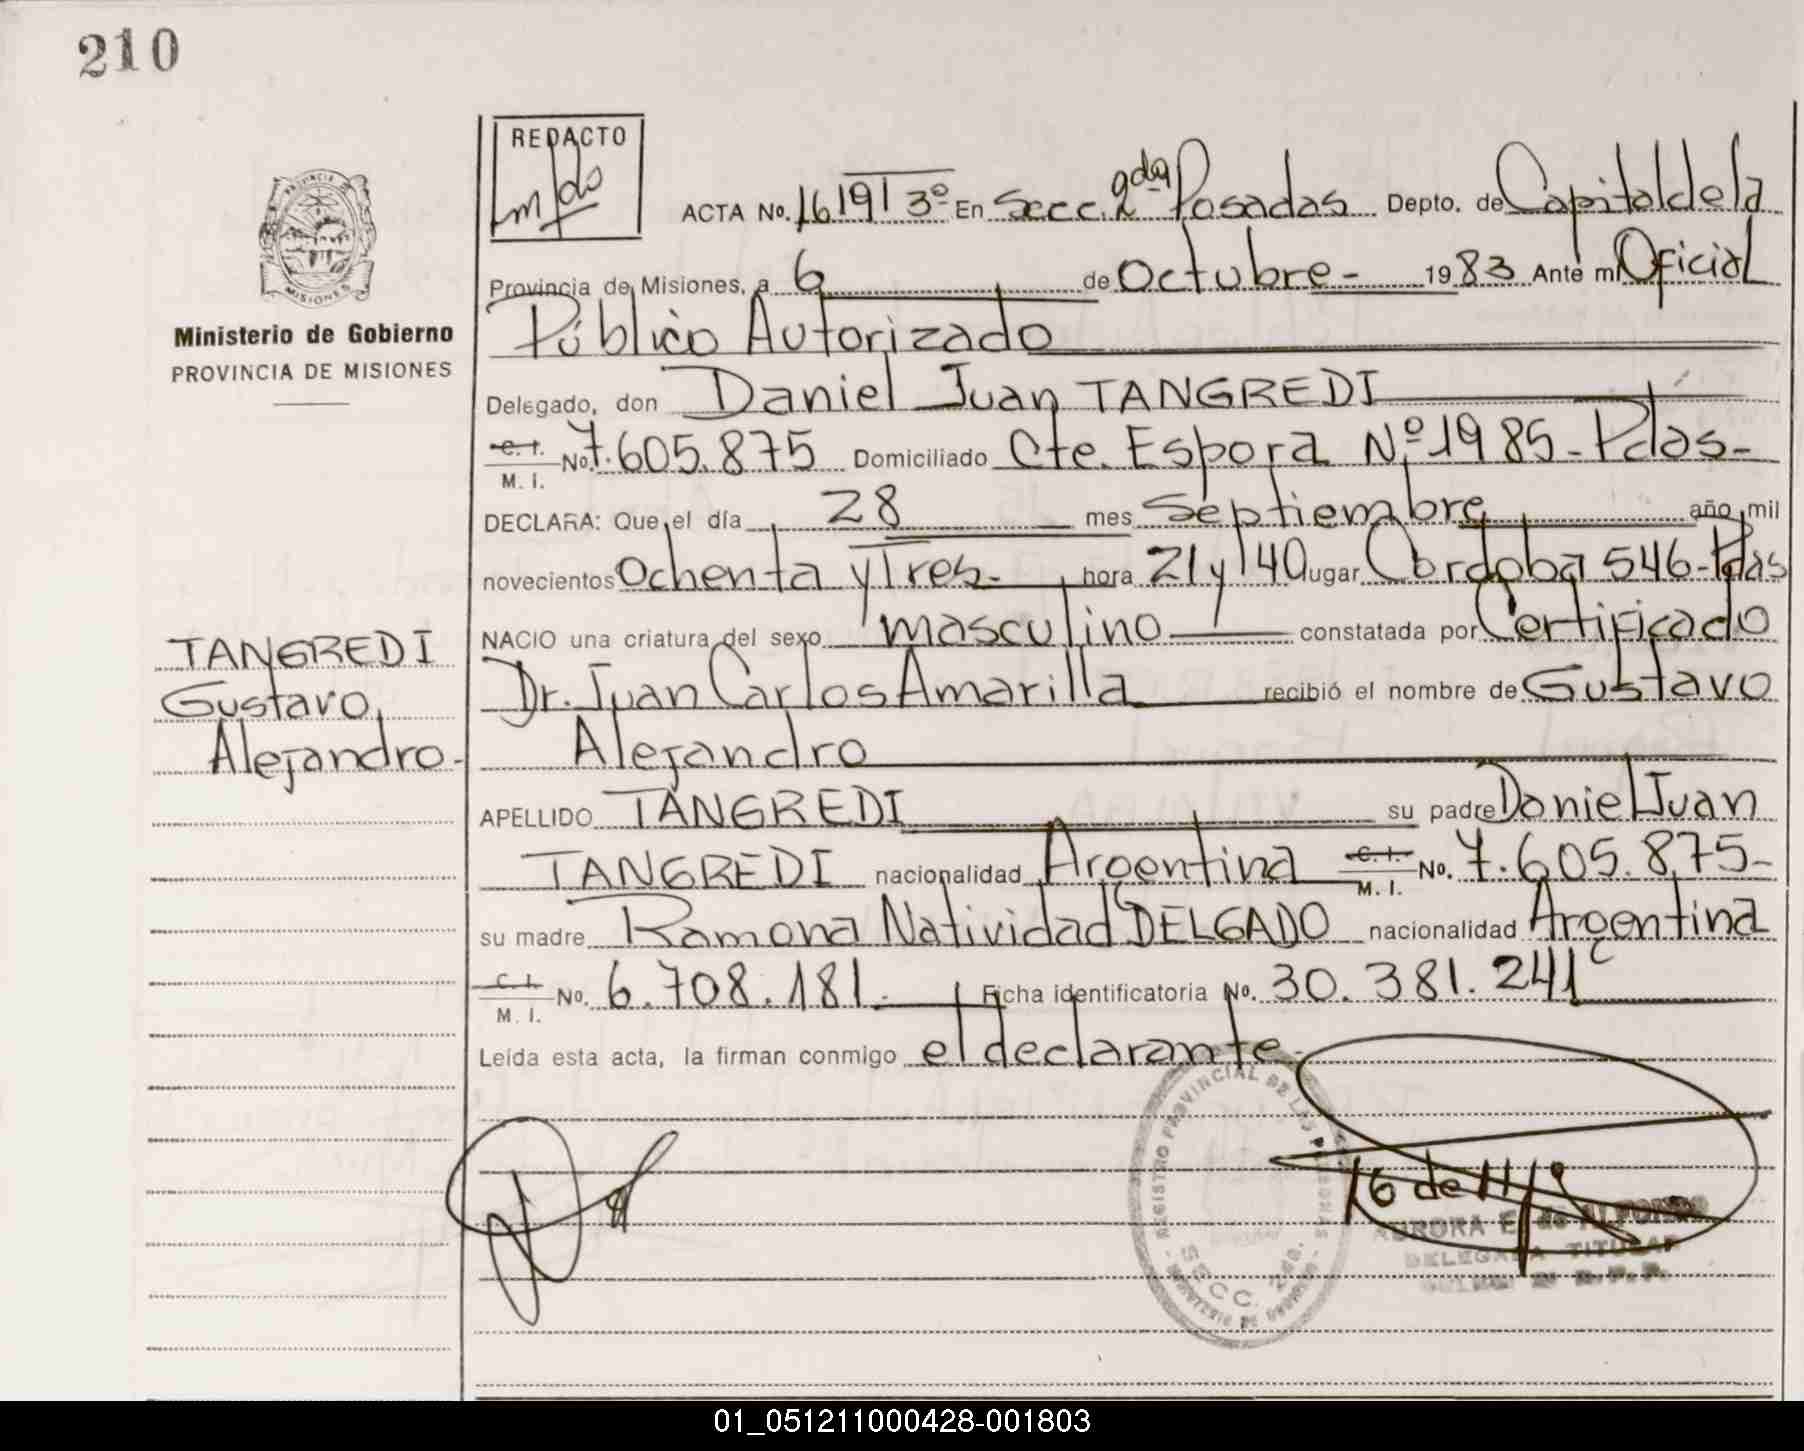 210
REDACTO
PROVINCIA DE
MISIONES
Ministerio de Gobierno
PROVINCIA DE MISIONES
ACTA No. 1619 | 3º En Secc. 2da Posadas Depto. de Capital de la
Provincia de Misiones, a 6 de Octubre - 1983 Ante mi Oficial
Público Autorizado
Delegado, don Daniel Juan TANGREDI
C. I.
M. I. No. 7.605.875 Domiciliado Cte. Espora Nº 1985 - Pdas -
DECLARA: Que el día 28 mes Septiembre año mil
novecientos Ochenta y Tres - hora 21 y 40 lugar Córdoba 546 - Pdas
NACIO una criatura del sexo masculino constatada por Certificado
Dr. Juan Carlos Amarilla recibió el nombre de Gustavo
Alejandro
TANGREDI
Gustavo
Alejandro -
APELLIDO TANGREDI su padre Daniel Juan
TANGREDI nacionalidad Argentina C. I.
M. I. No. 7.605.875 -
su madre Ramona Natividad DELGADO nacionalidad Argentina
C. I.
M. I. No. 6.708.181 - Ficha identificatoria No. 30.381.241
Leída esta acta, la firman conmigo el declarante -
REGISTRO PROVINCIAL DE LAS PERSONAS
SECC. 2da.
16 de 11
AURORA E. de ALFONSO
DELEGADA TITULAR
01_051211000428-001803